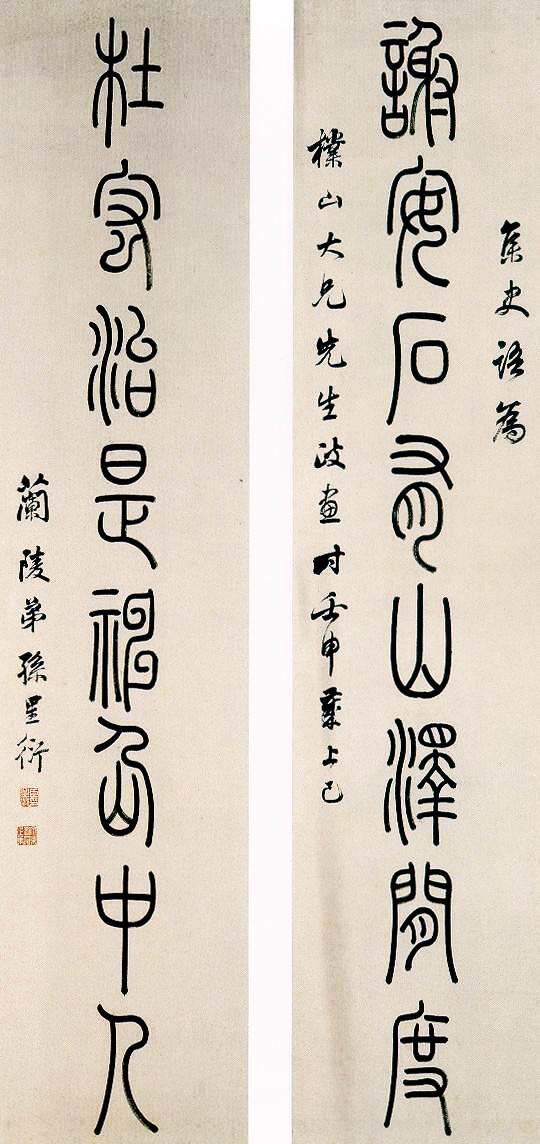 集史語為
謝安石有山澤閒度
樸山大兄先生政時壬申歲上巳
杜宏治是神仚中人
蘭陵弟孫星衍